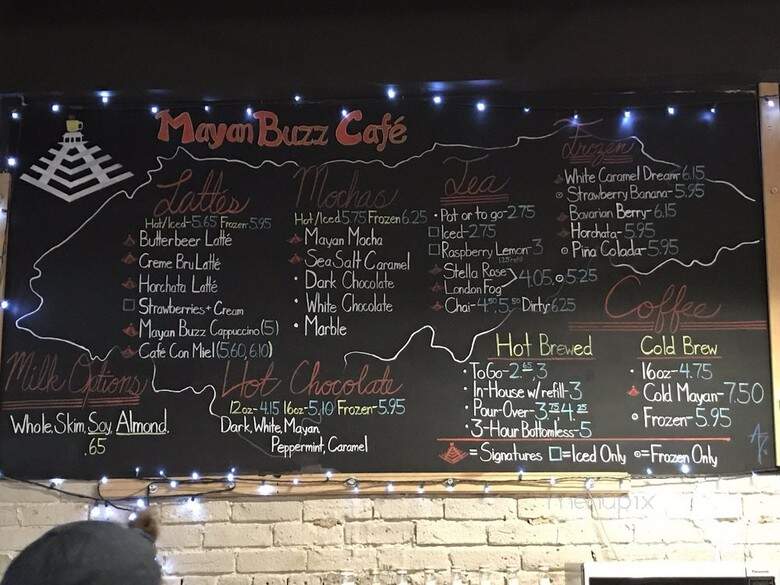 Mayan Buzz Café
Lattes
Hot/Iced-5.65 Frozen 5.95
Butterbeer Latté
Creme Bru Latté
Horchata Latté
Strawberries + Cream
Mayan Buzz Cappuccino (5)
Café Con Miel (5.60, 6.10)
Mochas
Hot/Iced 5.75 Frozen 6.25
Mayan Mocha
Sea Salt Caramel
• Dark Chocolate
• White Chocolate
• Marble
Tea
• Pot or to go-2.75
Iced-2.75
Raspberry Lemon-3
Stella Rose
London Fog
4.05, 5.25
Chai-4.50, 5.50 Dirty 6.25
Frozen
White Caramel Dream 6.15
Strawberry Banana-5.95
Bavarian Berry-6.15
Horchata-5.95
Piña Colada-5.95
Milk Options
Whole, Skim, Soy, Almond,
.65
Hot Chocolate
12oz-4.15 16oz-5.10 Frozen-5.95
Dark, White, Mayan
Peppermint, Caramel
Coffee
Hot Brewed
• To Go-2.65, 3
• In-House w/refill-3
• Pour-Over-3.75 4.25
• 3-Hour Bottomless-5
Cold Brew
• 16oz-4.75
Cold Mayan-7.50
• Frozen-5.95
=Signatures =Iced Only =Frozen Only
menupix